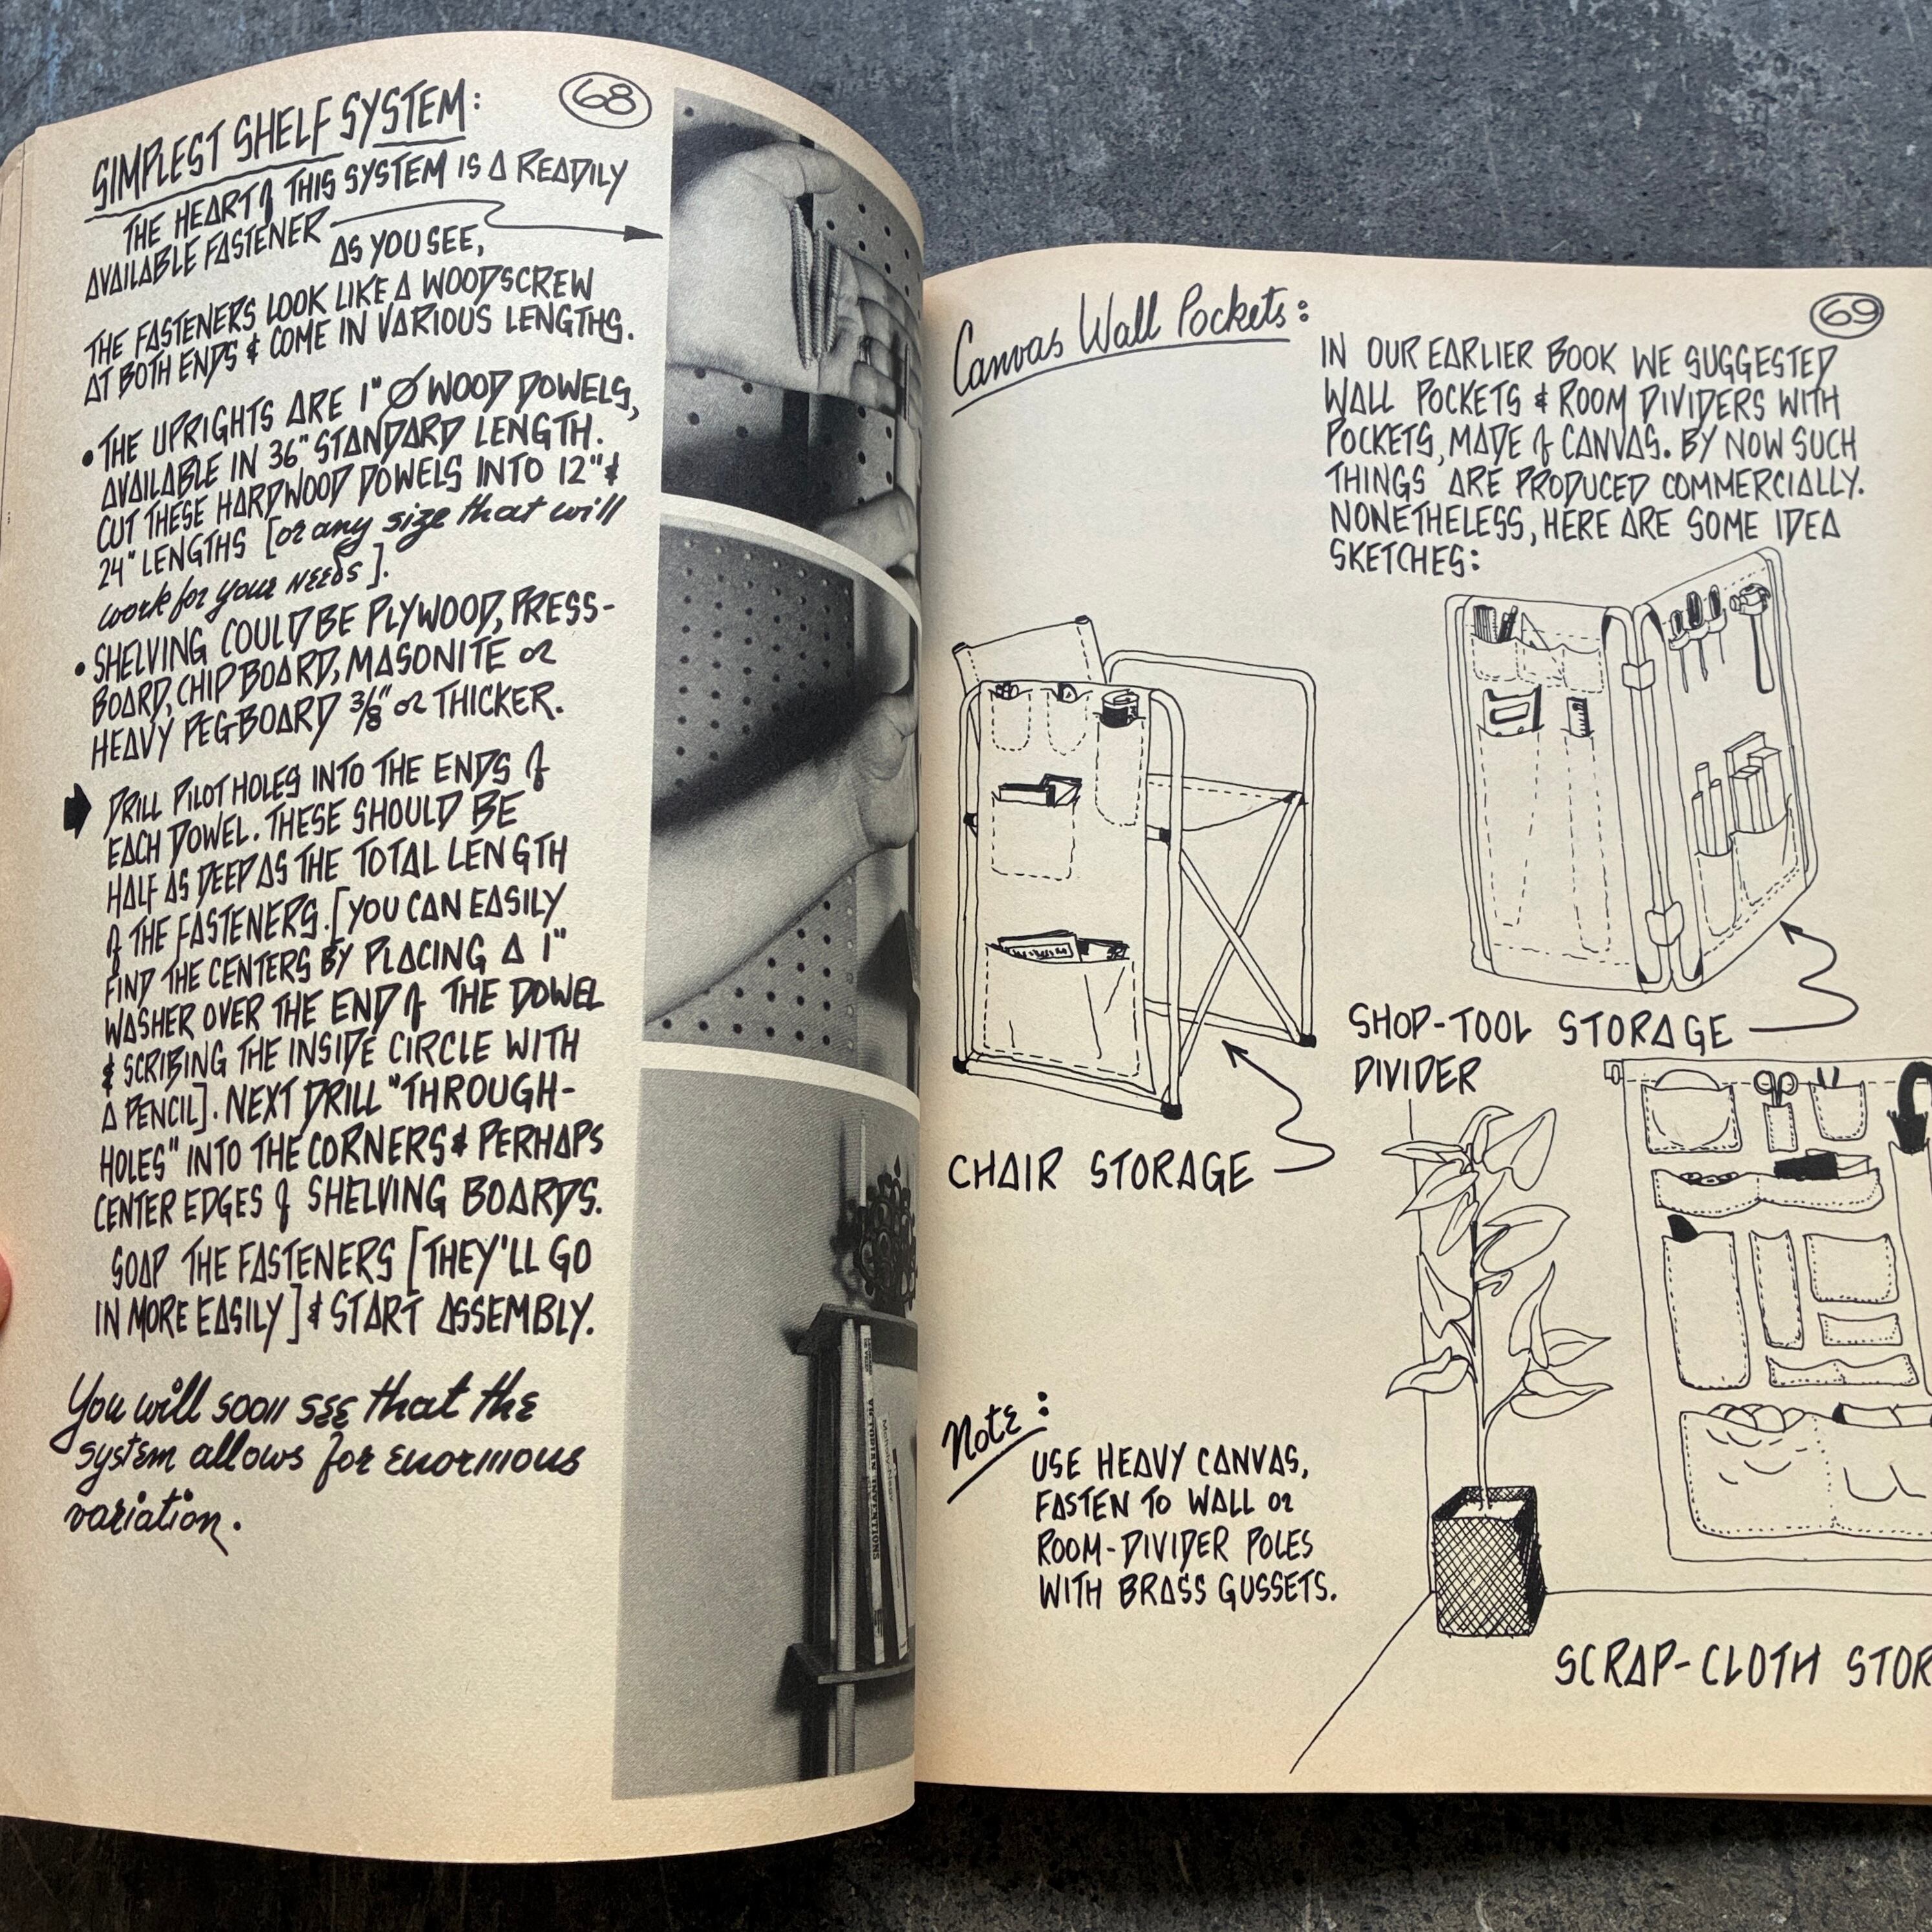 68
SIMPLEST SHELF SYSTEM:
THE HEART of THIS SYSTEM IS A READILY
AVAILABLE FASTENER
AS YOU SEE,
THE FASTENERS LOOK LIKE A WOODSCREW
AT BOTH ENDS & COME IN VARIOUS LENGTHS.
• THE UPRIGHTS ARE 1" Ø WOOD DOWELS,
AVAILABLE IN 36" STANDARD LENGTH.
CUT THESE HARDWOOD DOWELS INTO 12" &
24" LENGTHS [or any size that will
work for your NEEDS].
• SHELVING COULD BE PLYWOOD, PRESS-
BOARD, CHIPBOARD, MASONITE or
HEAVY PEGBOARD 3/8" or THICKER.
DRILL PILOT HOLES INTO THE ENDS of
EACH DOWEL. THESE SHOULD BE
HALF AS DEEP AS THE TOTAL LENGTH
of THE FASTENERS. [YOU CAN EASILY
FIND THE CENTERS BY PLACING A 1"
WASHER OVER THE END of THE DOWEL
& SCRIBING THE INSIDE CIRCLE WITH
A PENCIL]. NEXT DRILL "THROUGH-
HOLES" INTO THE CORNERS & PERHAPS
CENTER EDGES of SHELVING BOARDS.
SOAP THE FASTENERS [THEY'LL GO
IN MORE EASILY] & START ASSEMBLY.
You will soon see that the
system allows for enormous
variation.
VICTORIAN INVENTIONS
69
Canvas Wall Pockets:
IN OUR EARLIER BOOK WE SUGGESTED
WALL POCKETS & ROOM DIVIDERS WITH
POCKETS, MADE of CANVAS. BY NOW SUCH
THINGS ARE PRODUCED COMMERCIALLY.
NONETHELESS, HERE ARE SOME IDEA
SKETCHES:
SHOP-TOOL STORAGE
DIVIDER
CHAIR STORAGE
Note:
USE HEAVY CANVAS,
FASTEN TO WALL or
ROOM-DIVIDER POLES
WITH BRASS GUSSETS.
SCRAP-CLOTH STOR